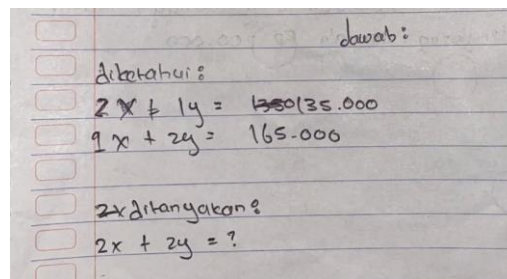 dawab:
diketahui:
2x + 1y = 135.000
1x + 2y = 165.000
2x ditanyakan:
2x + 2y = ?